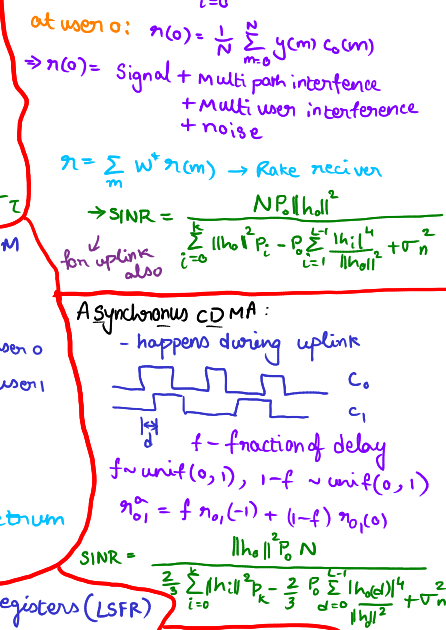 i=0
at user 0: r(0) = 1/N Σ_{m=0}^{N} y(m) c₀(m)
⇒ r(0) = Signal + Multi path interfence
+ Multi user interference
+ noise
r = Σ_m W* r(m) → Rake reciver
→ SINR = NP₀||h₀||² / (Σ_{i=0}^{k} ||h₀||² P_i - P₀ Σ_{i=1}^{L-1} |h_i|⁴/||h₀||² + σ_n²)
for uplink
also
τ
M
Asynchronus CDMA:
- happens during uplink
C₀
C₁
d
f - fraction of delay
f ~ unif(0,1), 1-f ~ unif(0,1)
r₀₁ᵃ = f r₀₁(-1) + (1-f) r₀₁(0)
SINR = ||h₀||² P₀ N / (2/3 Σ_{i=0}^{k} ||h_i||² P_k - 2/3 P₀ Σ_{d=0}^{L-1} |h₀(d)|⁴/||h||² + σ_n²)
ser 0
user 1
ctrum
egisters (LSFR)